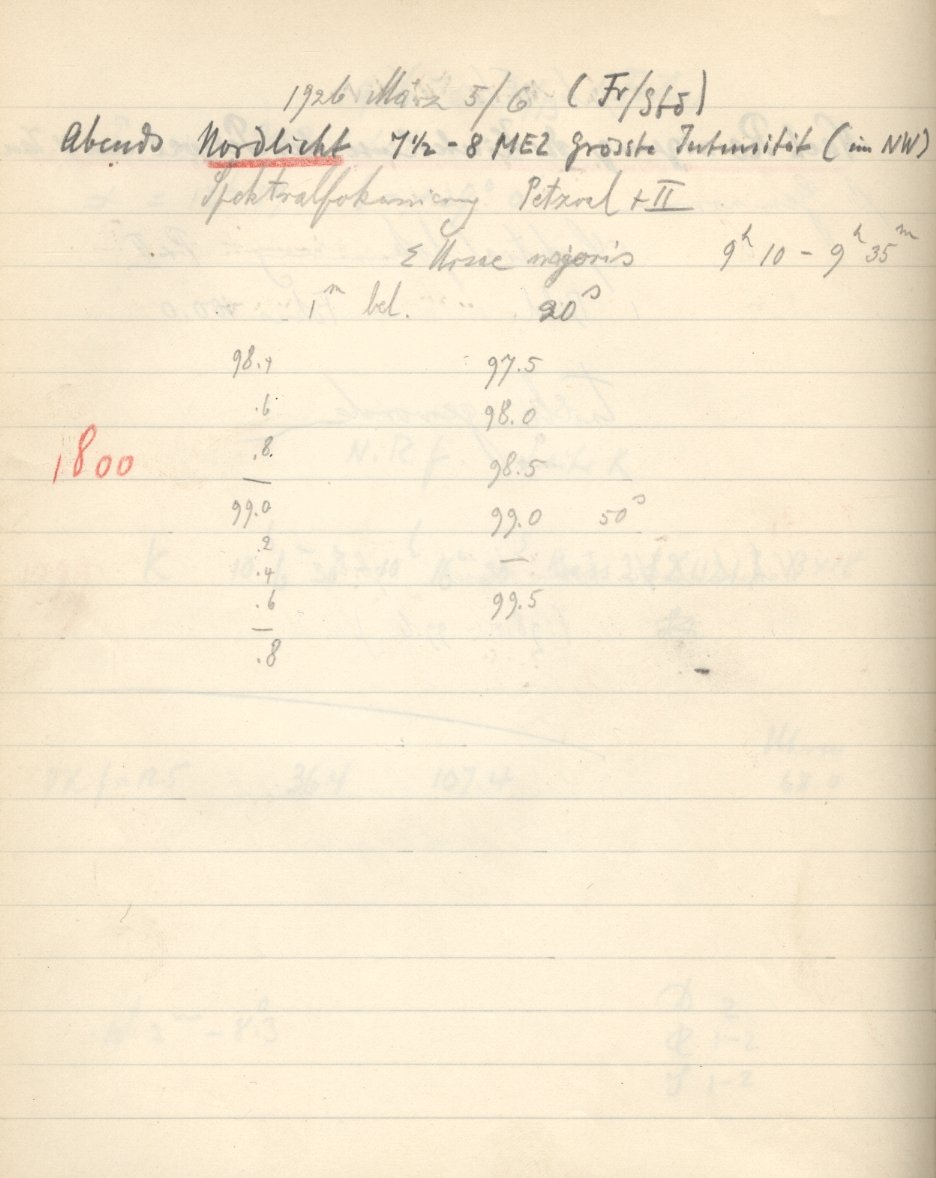 1926 März 5/6 (Fr/Stō)
Abends Nordlicht 7½ - 8 MEZ Grösste Intensität (im NW)
Spektralfokussierung Petzval + II
ε Ursae majoris 9ʰ 10 - 9ʰ 35ᵐ
1ᵐ bel. 20ˢ
98.4 97.5
.6 98.0
1800 .8 98.5
99.0 99.0 50ˢ
.2
.4
.6 99.5
.8